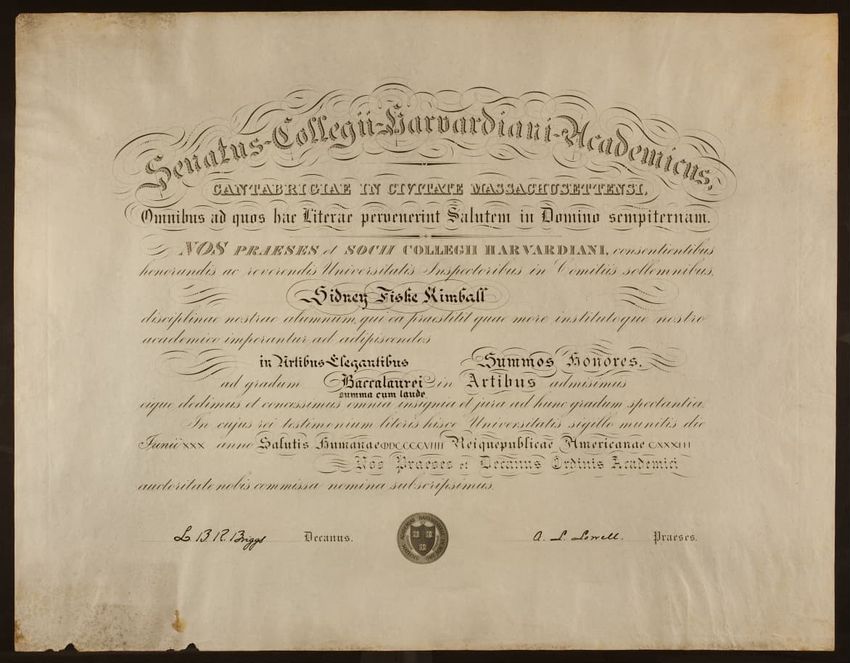 Senatus-Collegii-Harvardiani-Academicus,
CANTABRIGIAE IN CIVITATE MASSACHUSETTENSI,
Omnibus ad quos hae Literae pervenerint Salutem in Domino sempiternam.
NOS PRAESES et SOCII COLLEGII HARVARDIANI, consentientibus
honorandis ac reverendis Universitatis Inspectoribus in Comitiis sollemnibus,
Sidney Fiske Kimball
disciplinae nostrae alumnum, qui ea praestitit quae more institutoque nostro
academico imperantur ad adipiscendos
in Artibus Elegantibus Summos Honores,
ad gradum Baccalaurei in Artibus admisimus
summa cum laude
eique dedimus et concessimus omnia insignia et jura ad hunc gradum spectantia.
In cujus rei testimonium literis hisce Universitatis sigillo munitis die
Junii XXX anno Salutis Humanae MDCCCCVIIII Reiquepublicae Americanae CXXXIII
Nos Praeses et Decanus Ordinis Academici
auctoritate nobis commissa nomina subscripsimus.
L. B. R. Briggs Decanus.
A. L. Lowell. Praeses.